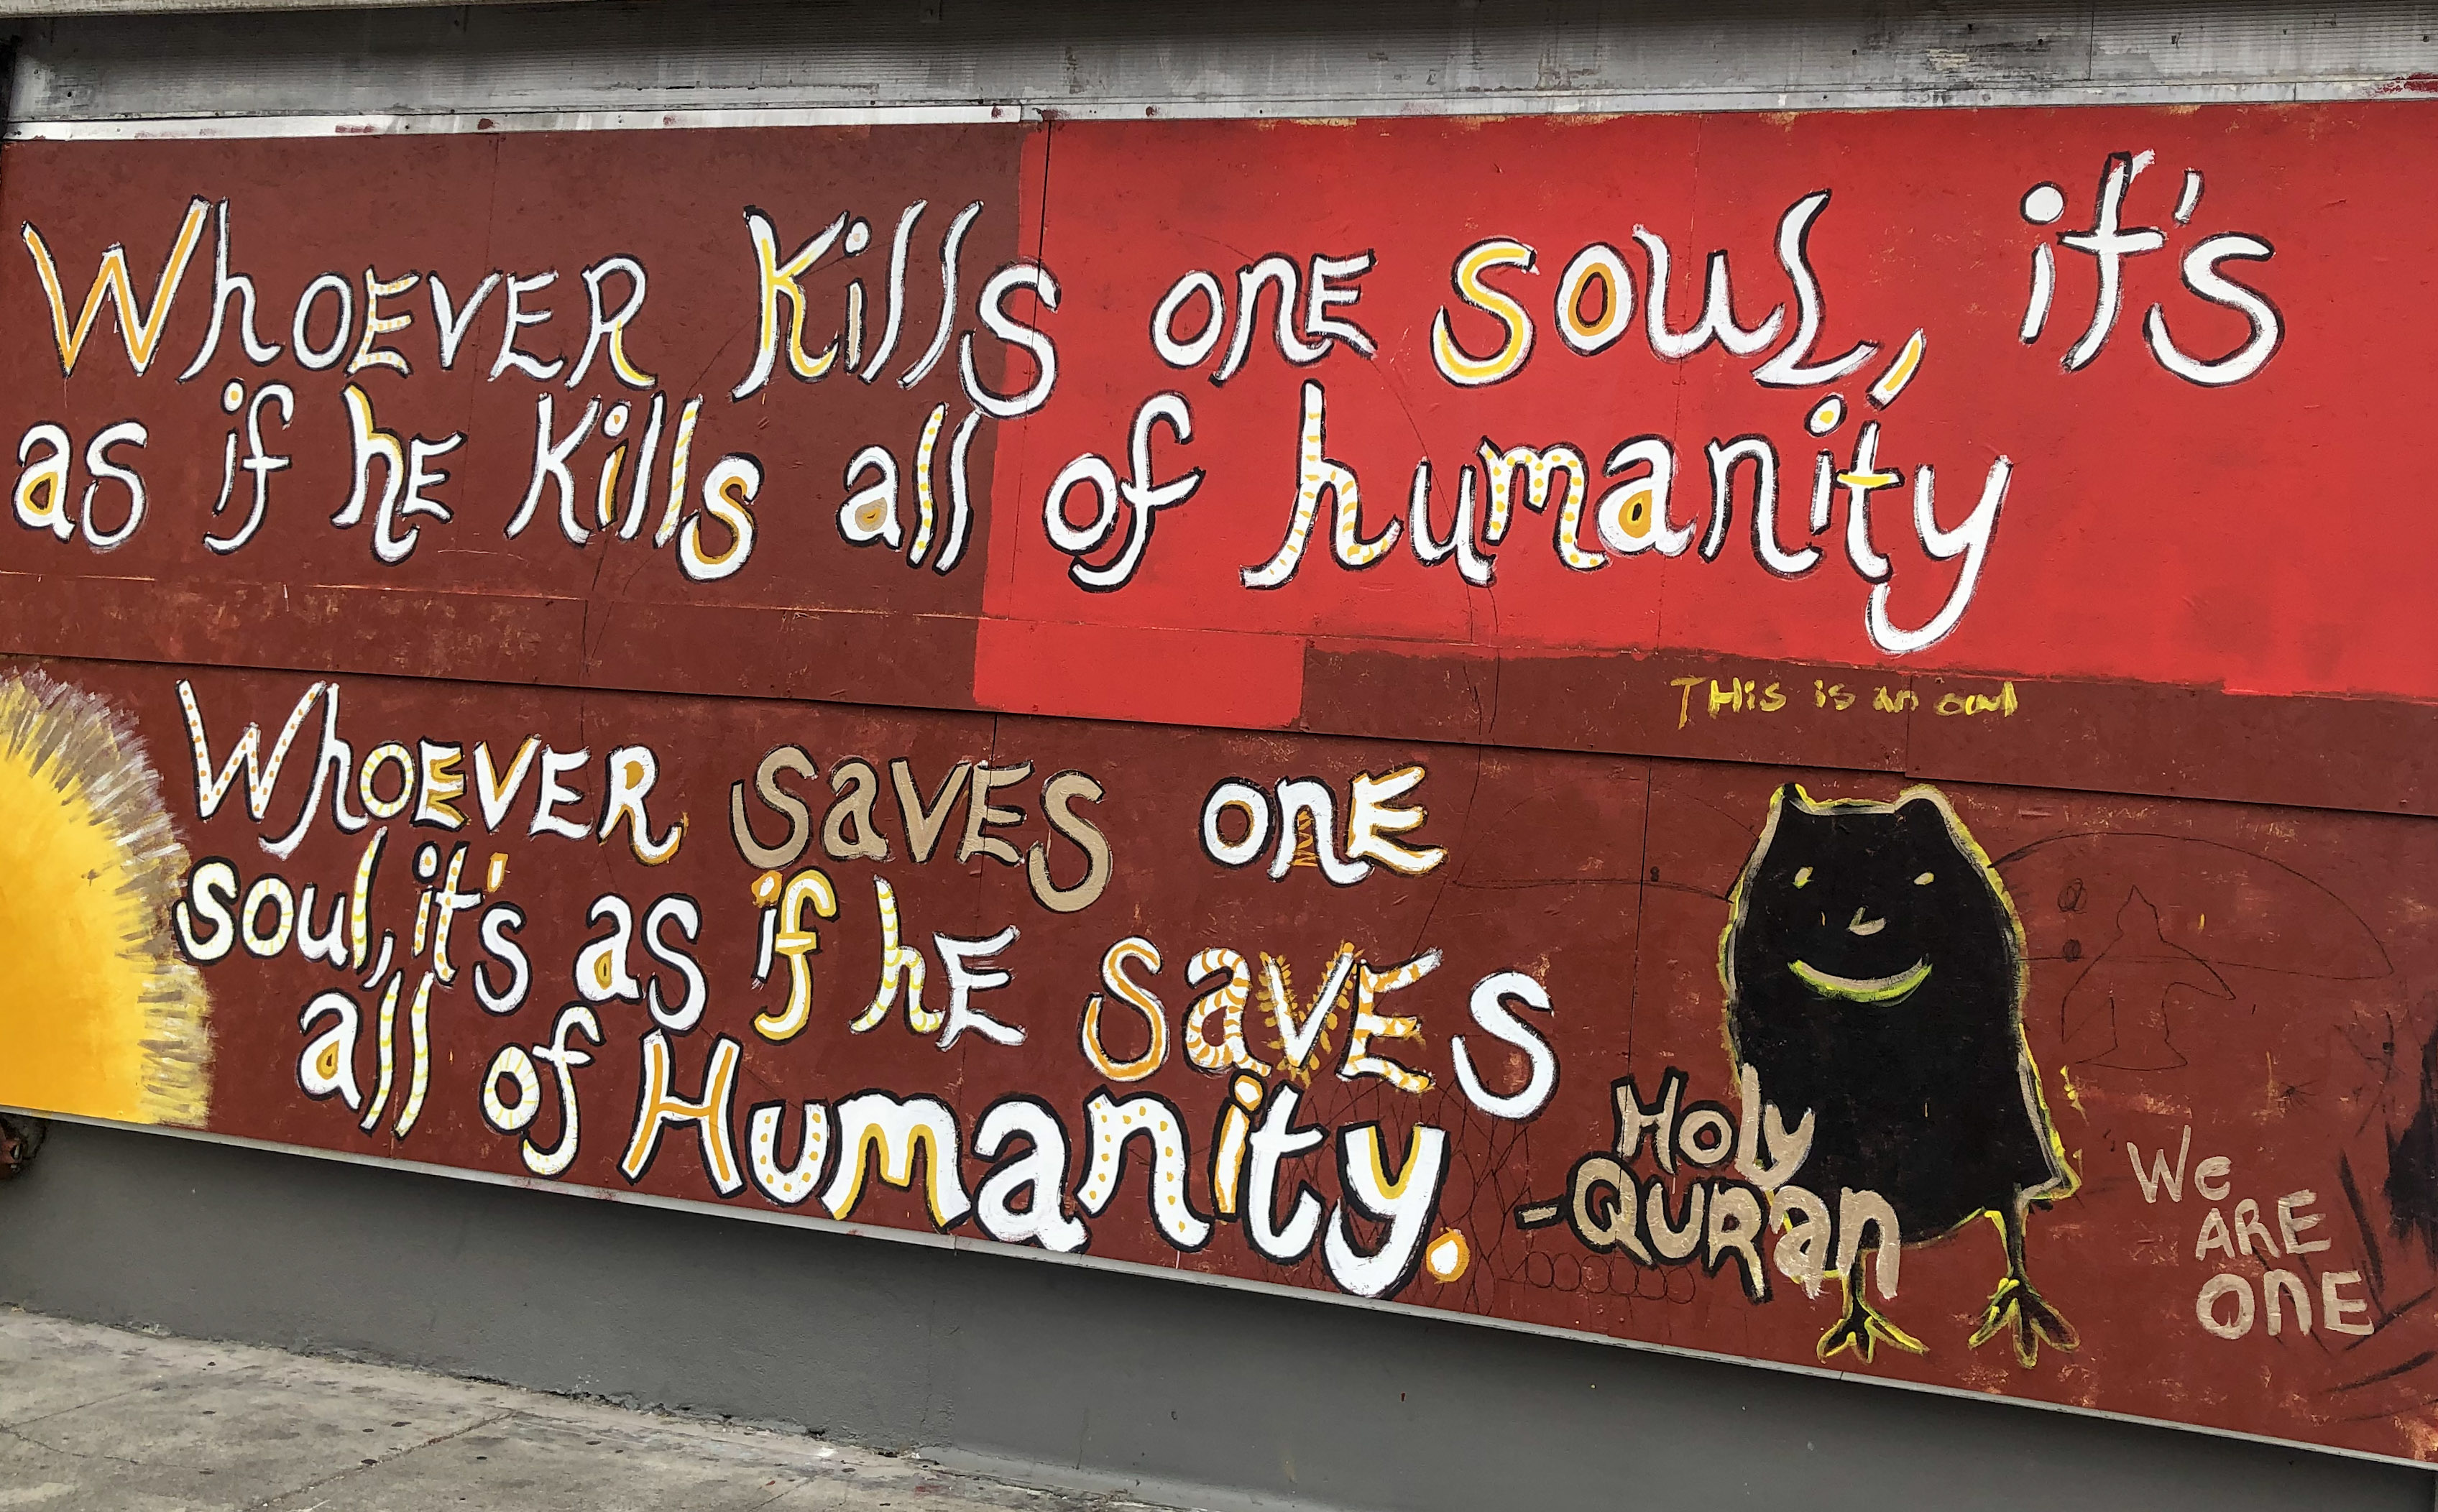 WhoEVER Kills onE soul, it's
as if hE Kills all of humanity
THis is an owl
WhoEVER SaVES onE
soul, it's as if hE SaVES
all of Humanity.
Holy
-QURan
We
ARE
OnE